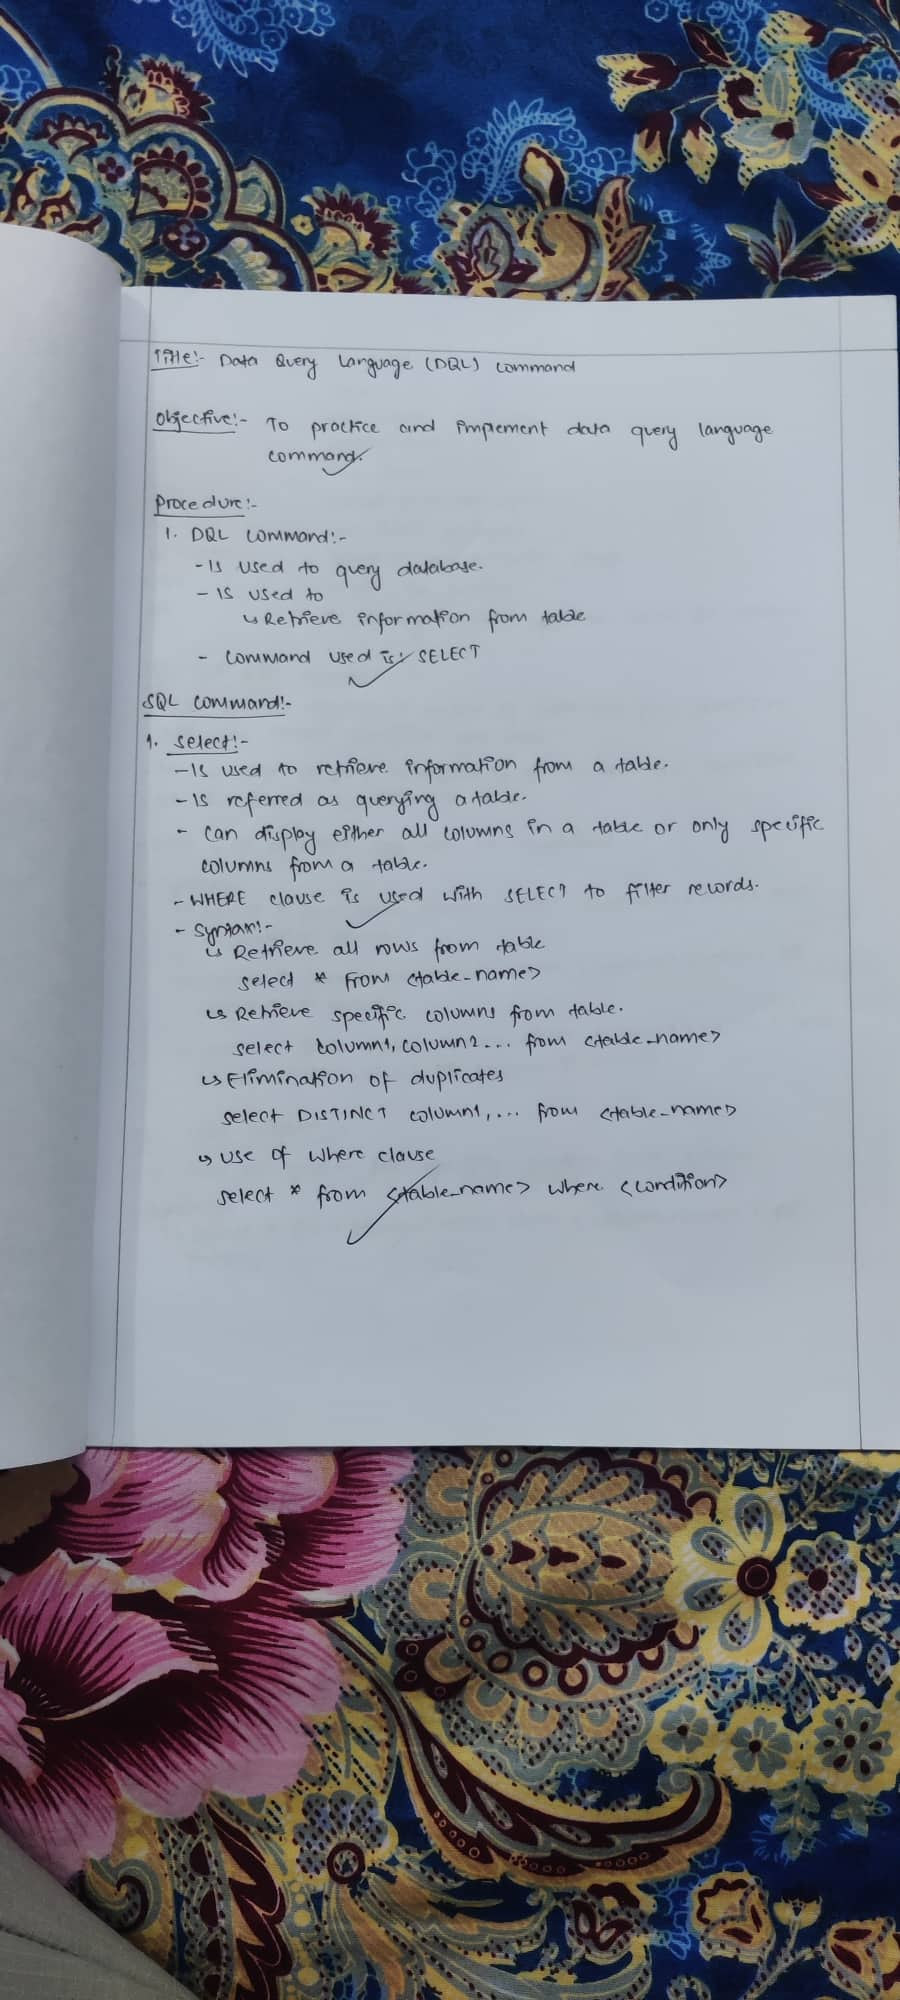 Title:- Data Query Language (DQL) command
Objective:- To practice and implement data query language
command.
Procedure:-
1. DQL command:-
- Is used to query database.
- Is used to
↳ Retrieve information from table
- Command used is: SELECT
SQL command:-
1. Select:-
- Is used to retrieve information from a table.
- Is referred as querying a table.
- Can display either all columns in a table or only specific
columns from a table.
- WHERE clause is used with SELECT to filter records.
- Syntax:-
↳ Retrieve all rows from table
select * From <table_name>
↳ Retrieve specific columns from table.
select column1, column2... from <table_name>
↳ Elimination of duplicates
select DISTINCT column1,... from <table_name>
↳ Use of where clause
select * from <table_name> where <condition>